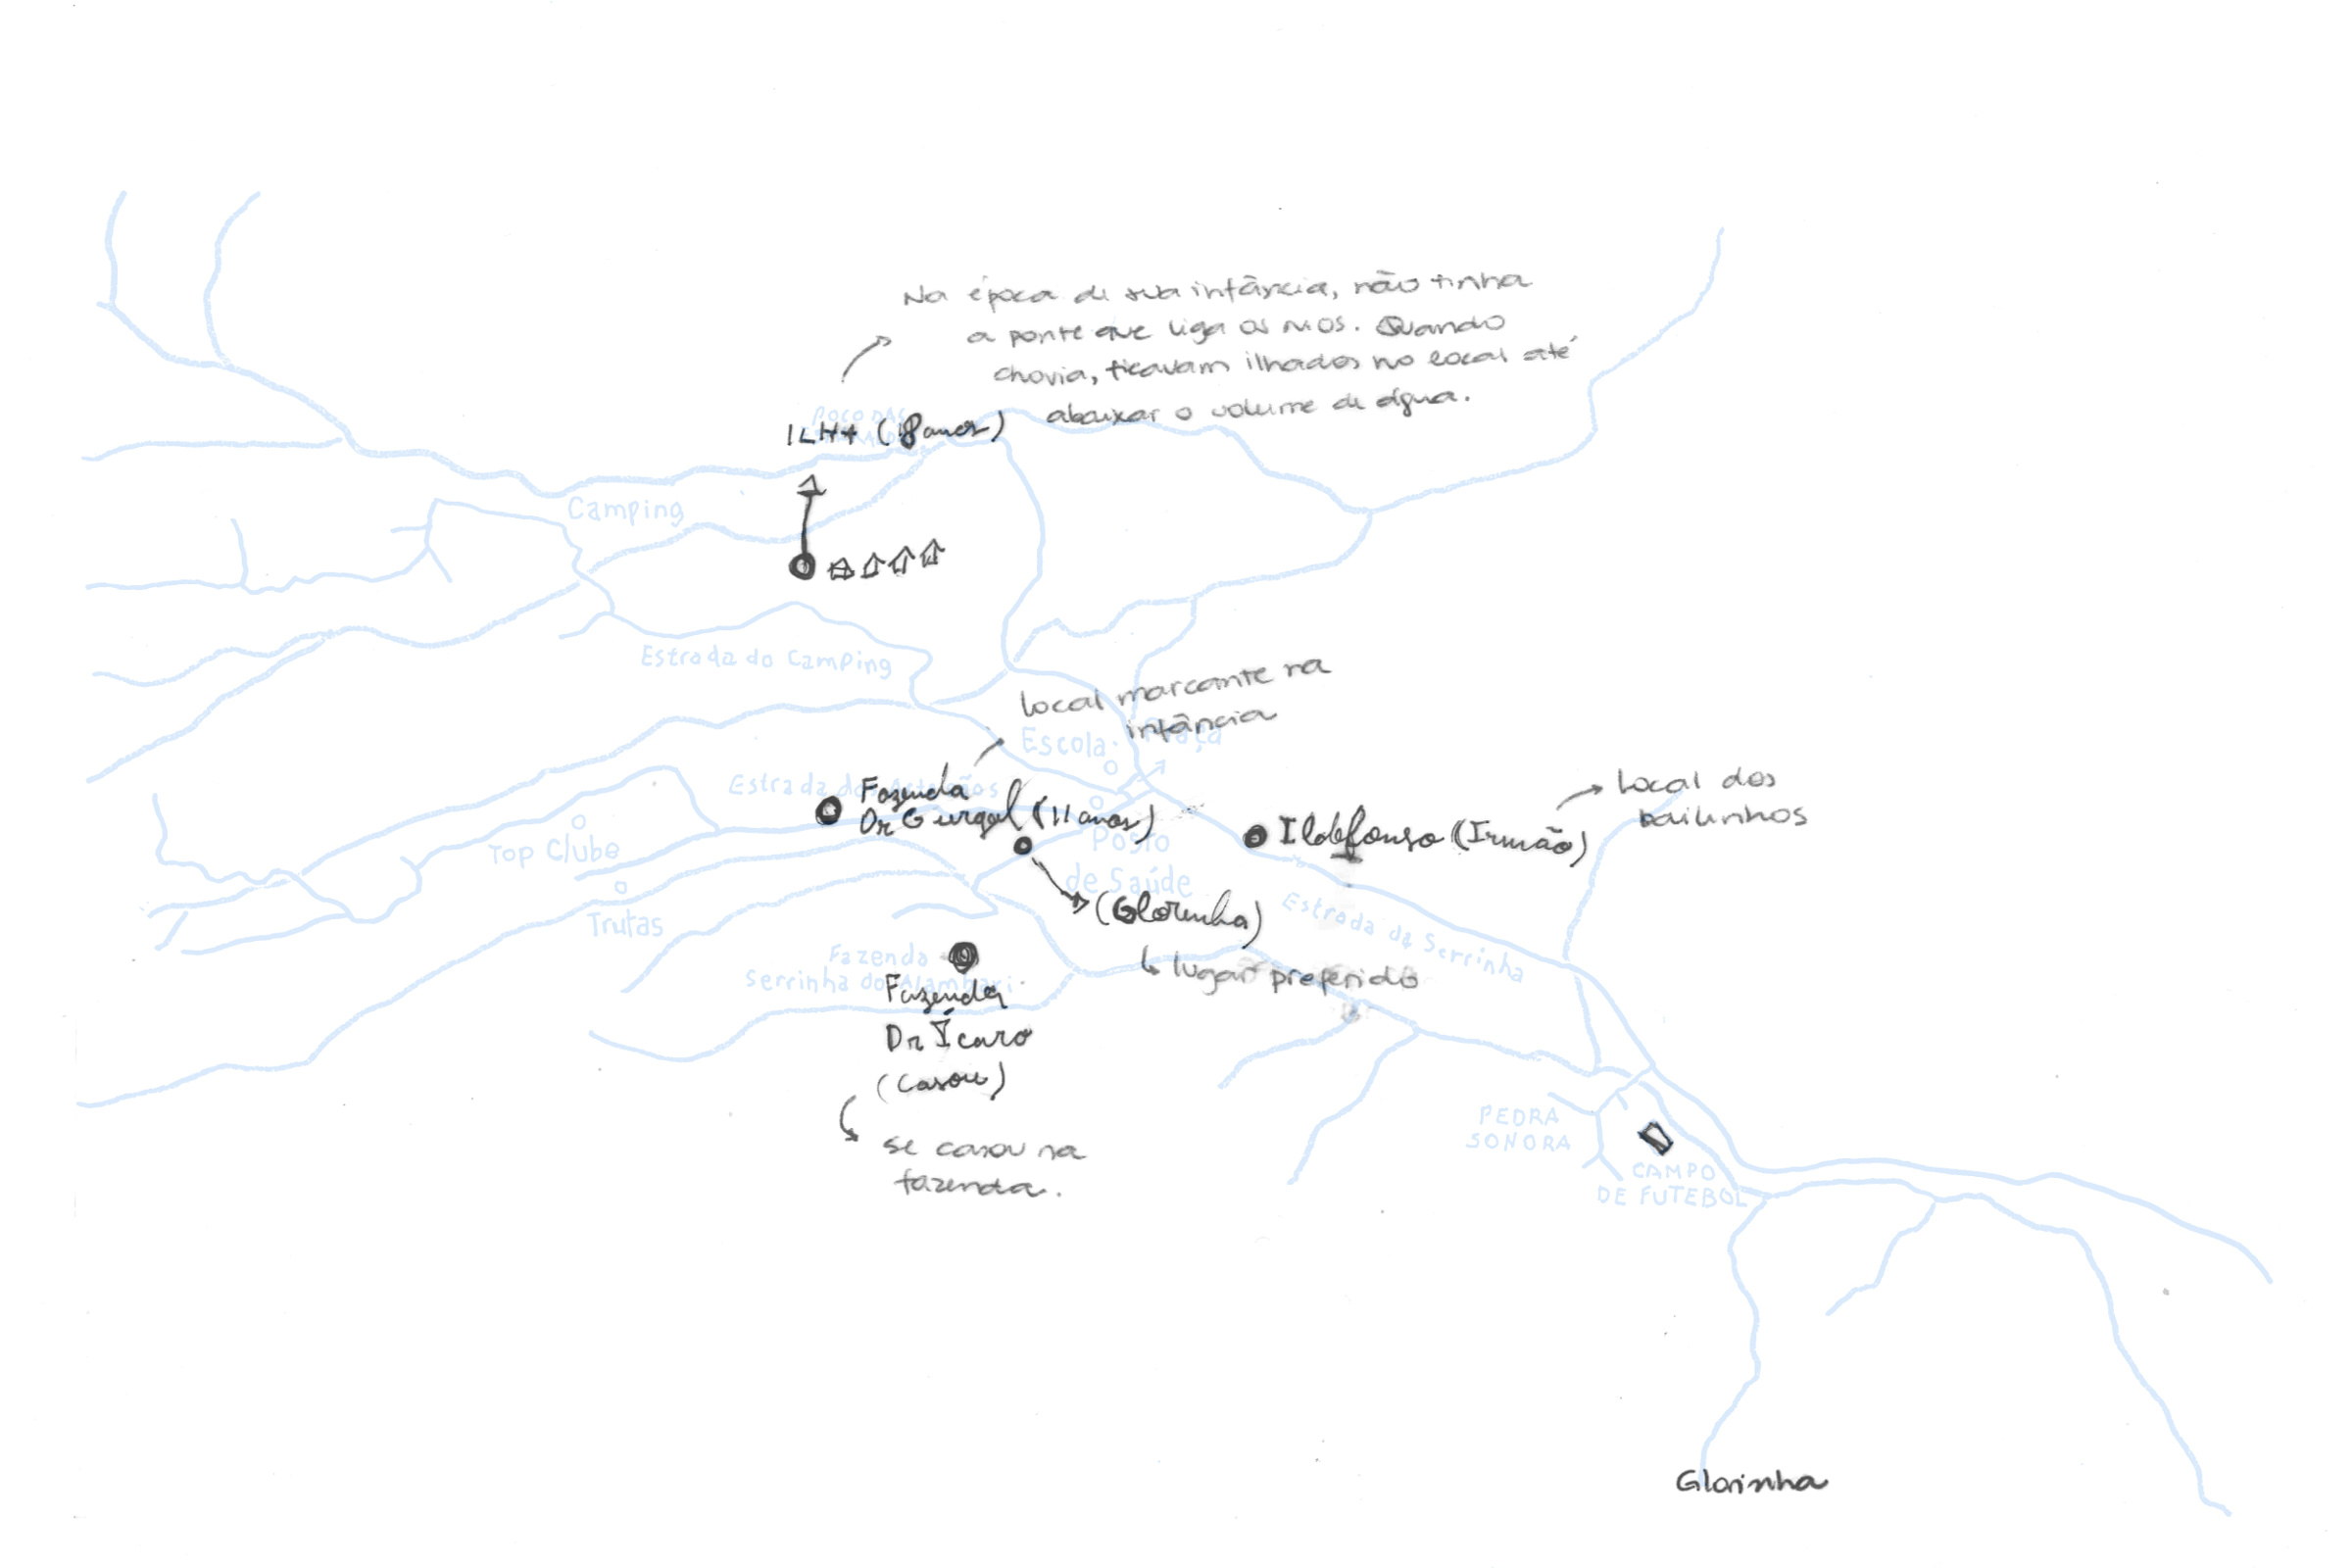 Na época de sua infância, não tinha
a ponte que liga os rios. Quando
chovia, ficavam ilhados no local até
abaixar o volume de água.
POÇO DAS
ILHA (18 anos)
Camping
Estrada do Camping
Local marcante na
infância
Escola
Praça
Estrada dos Artesãos
Fazenda
Dr Gurgel (11 anos)
Local dos
bailinhos
Ildefonso (Irmão)
Top Clube
Posto
de Saúde
(Glorinha)
Trutas
Estrada da Serrinha
lugar preferido
Fazenda
Serrinha do Alambari
Fazenda
Dr Ícaro
(Casou)
se casou na
fazenda.
PEDRA
SONORA
CAMPO
DE FUTEBOL
Glorinha